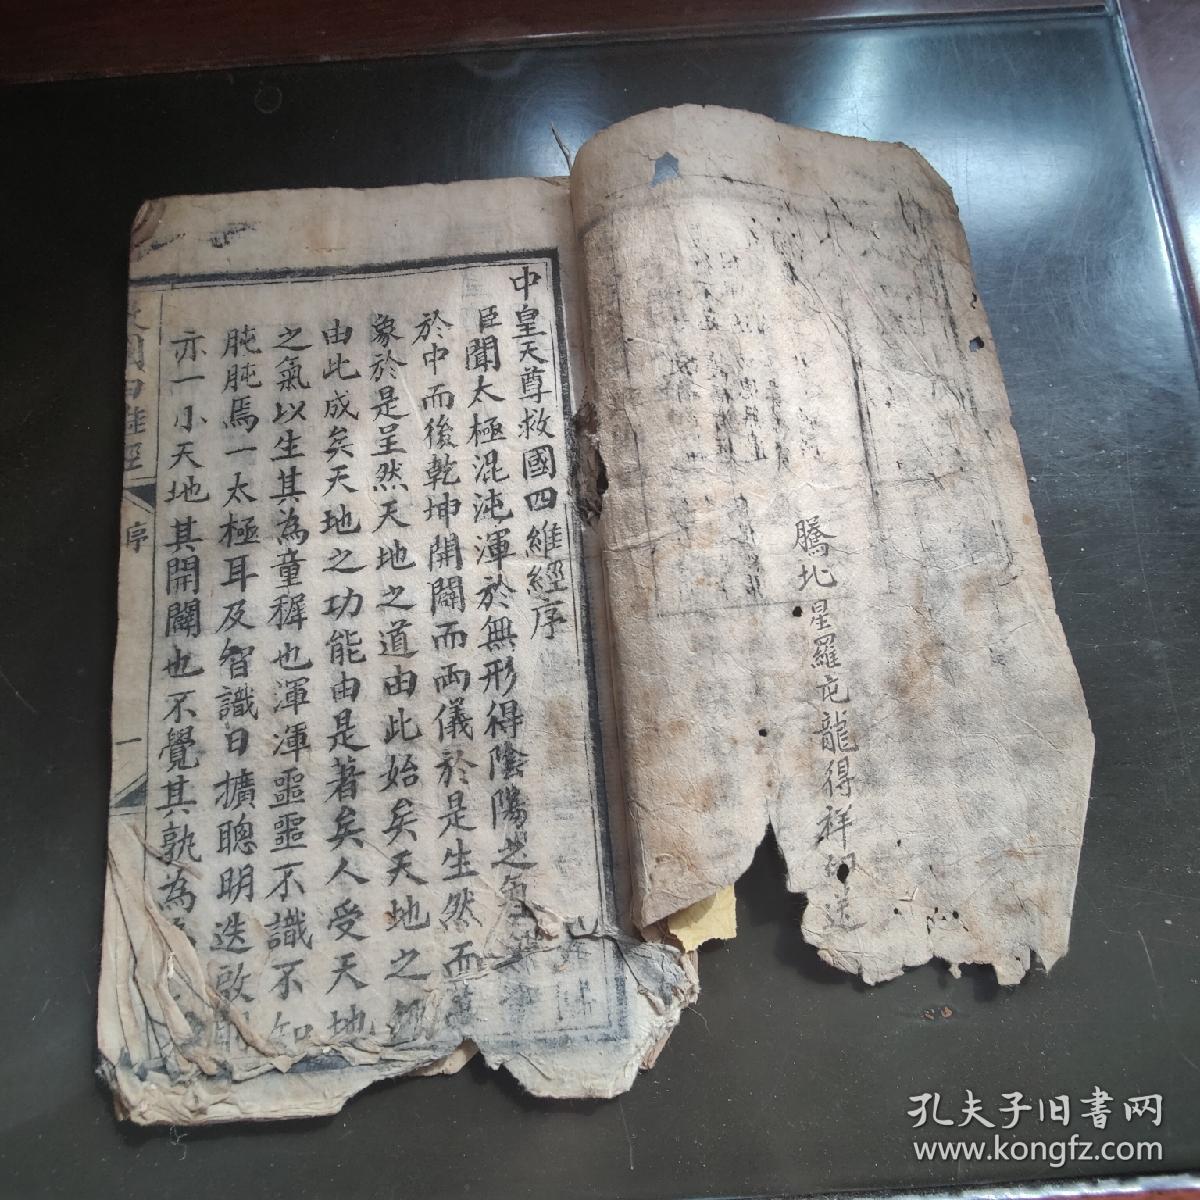 騰北星羅屯龍得祥印送
中皇天尊救國四維經序
臣聞太極混沌渾於無形得陰陽之氣
於中而後乾坤開闢而兩儀於是生然而萬
象於是呈然天地之道由此始矣天地之
由此成矣天地之功能由是著矣人受天地
之氣以生其為童穉也渾渾噩噩不識不知
肫肫焉一太極耳及智識日擴聰明迭啟
亦一小天地其開闢也不覺其孰為
救國四維經
序
一
孔夫子旧書网
www.kongfz.com